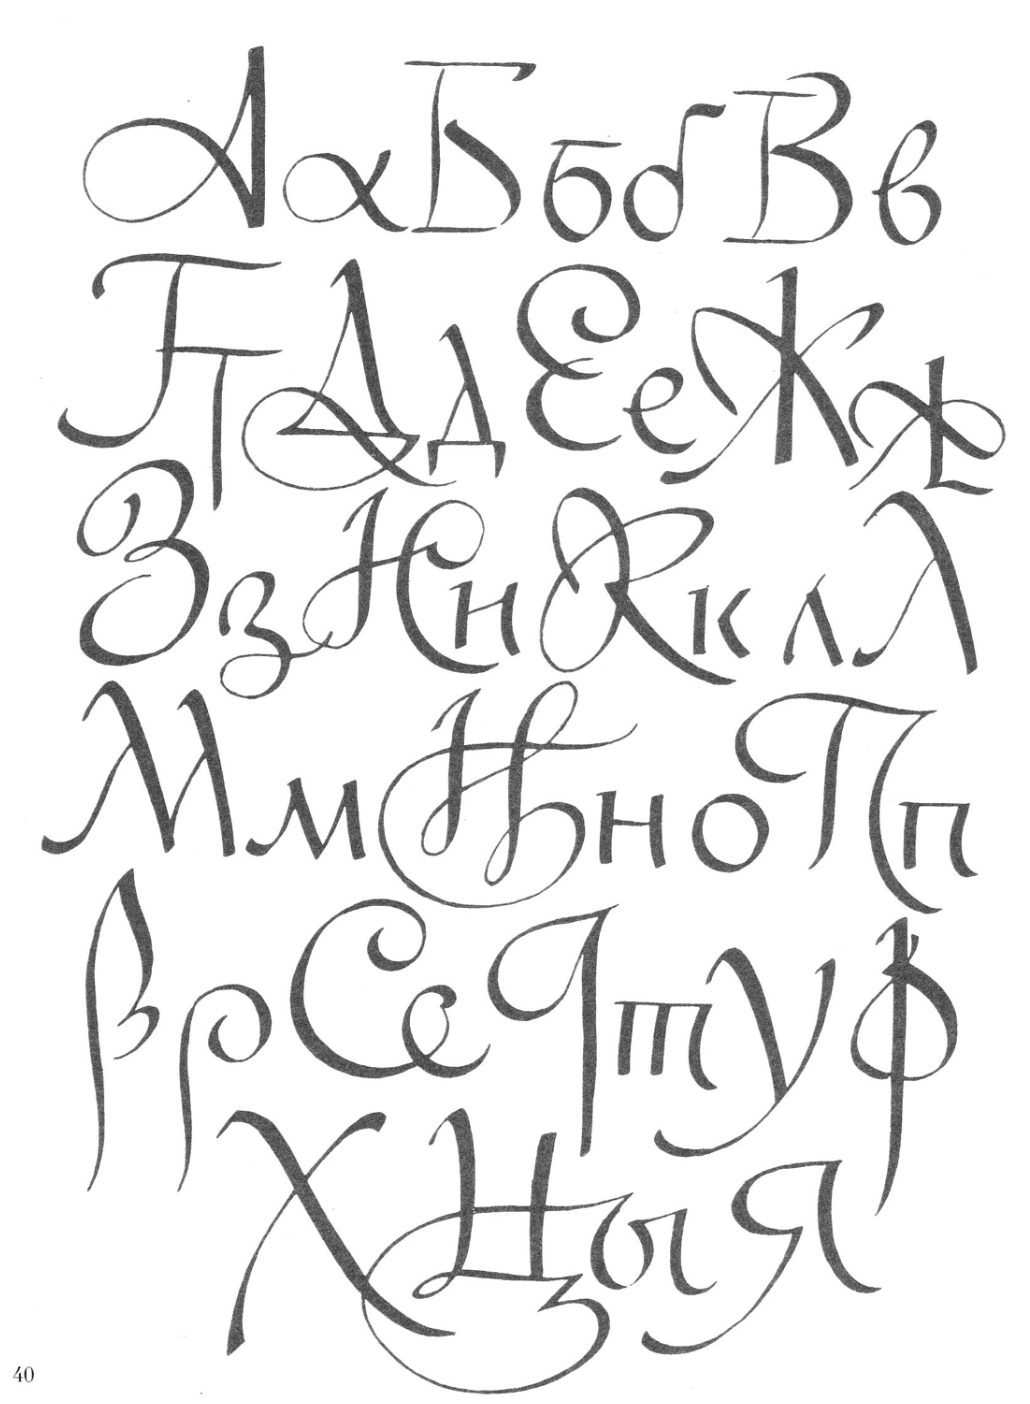 Аа Ббб Вв
Гг Дд Ее Жж
Зз Ии Кк лЛ
Мм Нн о Пп
Рр Сс Тт У ф
Х Ц ы Я
40